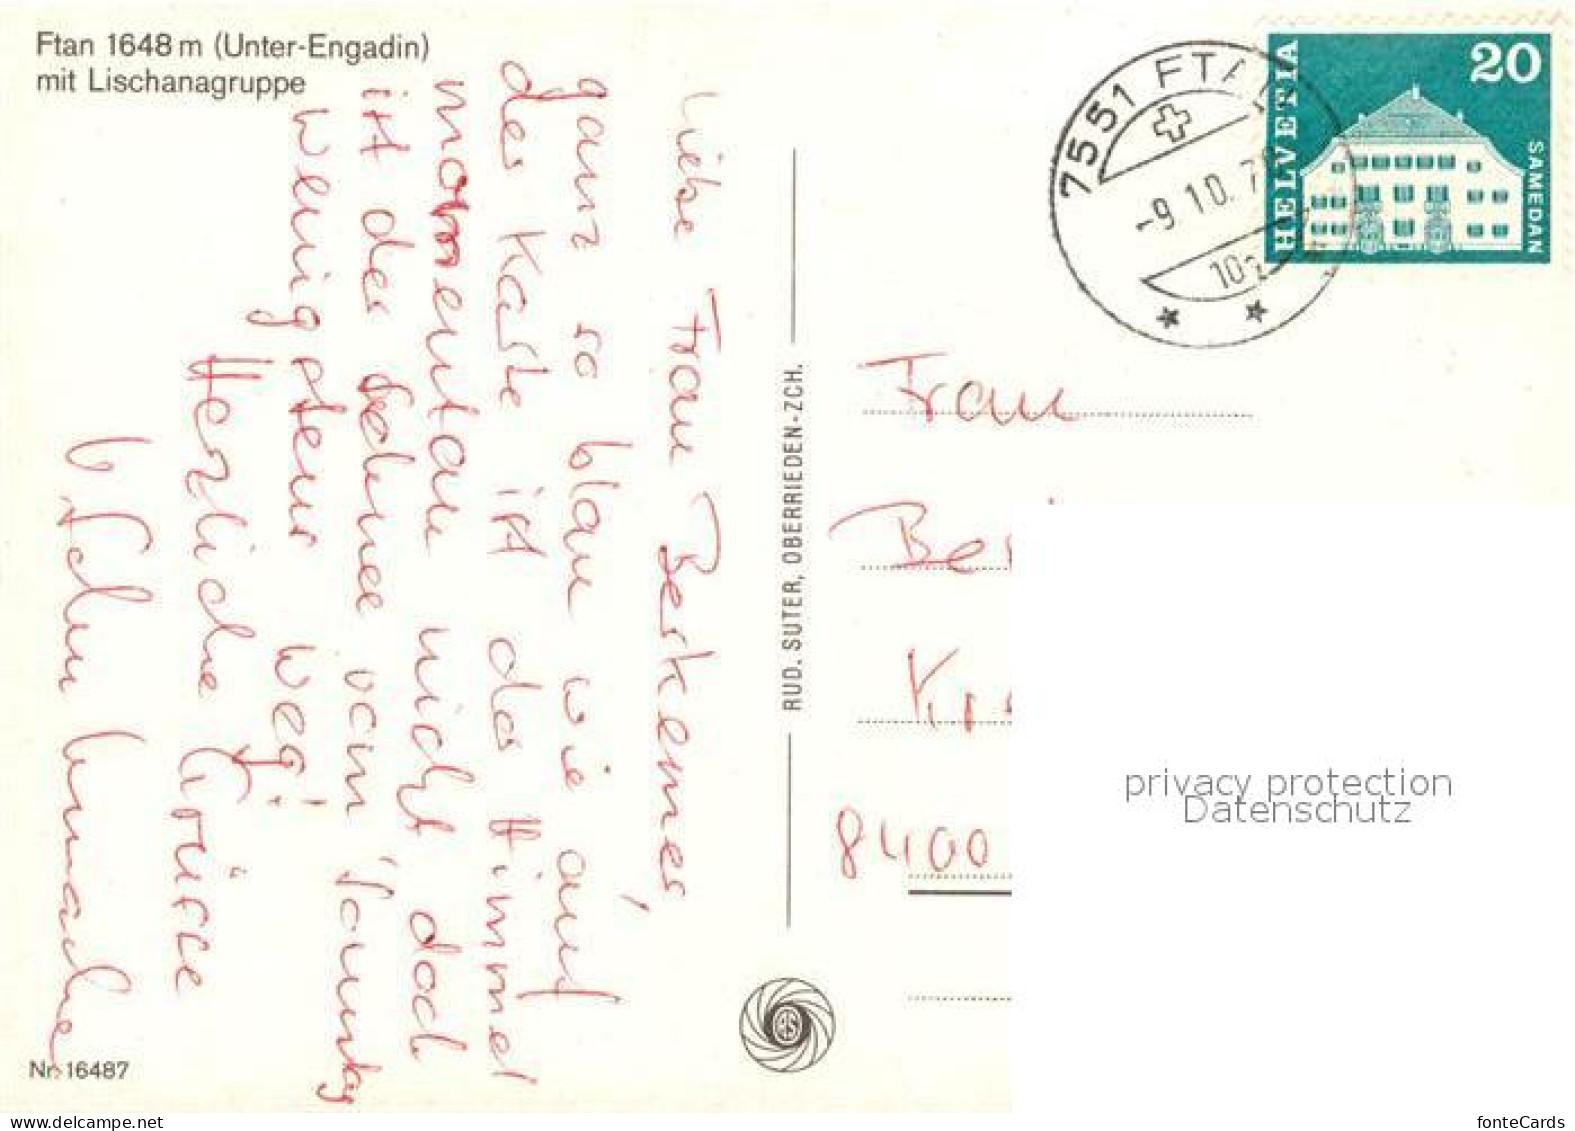 Ftan 1648 m (Unter-Engadin)
mit Lischanagruppe
Liebe Frau Berkemer,
ganz so blau wie auf
der Karte ist der Himmel
momentan nicht doch
ist der Schnee vom Sonntag
wenigstens weg!
Herzliche Grüsse
Nr. 16487
RUD. SUTER, OBERRIEDEN-ZCH.
RS
7551 FTA
-9.10.7
10
HELVETIA
20
SAMEDAN
Frau
Be
8400
privacy protection
Datenschutz
www.delcampe.net
fonteCards